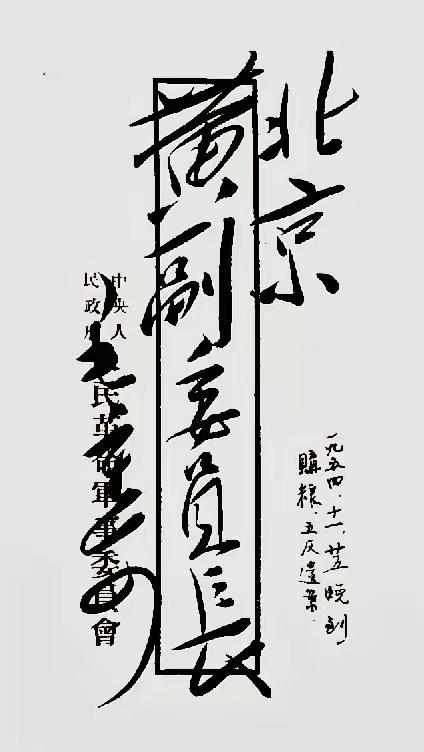 北京
黄副委员長
中央人
民政府
人民革命軍事委員會
一九五四.十一.廿五晚到
購糧.五反遺案.